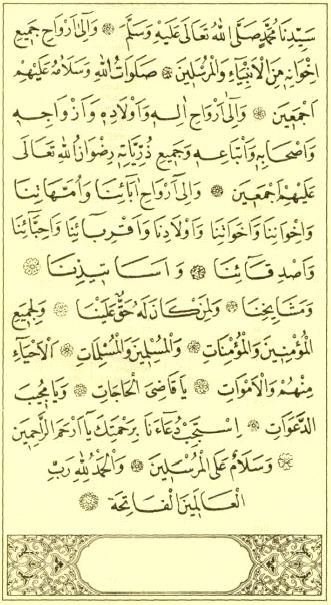 سَيِّدِنَا مُحَمَّدٍ صَلَّى اللهُ تَعَالَى عَلَيْهِ وَسَلَّمَ ۞ وَاِلٰى اَرْوَاحِ جَمِيعِ
اِخْوَانِهِ مِنَ الْاَنْبِيَاءِ وَالْمُرْسَلِينَ ۞ صَلَوَاتُ اللهِ وَسَلَامُهُ عَلَيْهِمْ
اَجْمَعِينَ ۞ وَاِلٰى اَرْوَاحِ اٰلِهِ وَاَوْلَادِهِ وَاَزْوَاجِهِ
وَاَصْحَابِهِ وَاَتْبَاعِهِ وَجَمِيعِ ذُرِّيَّاتِهِ رِضْوَانُ اللهِ تَعَالَى
عَلَيْهِمْ اَجْمَعِينَ ۞ وَاِلٰى اَرْوَاحِ اٰبَائِنَا وَاُمَّهَاتِنَا
وَاِخْوَانِنَا وَاَخَوَاتِنَا وَاَوْلَادِنَا وَاَقْرِبَائِنَا وَاَحِبَّائِنَا
وَاَصْدِقَائِنَا ۞ وَاَسَاتِيذِنَا ۞
وَمَشَايِخِنَا ۞ وَلِمَنْ كَانَ لَهُ حَقٌّ عَلَيْنَا ۞ وَلِجَمِيعِ
الْمُؤْمِنِينَ وَالْمُؤْمِنَاتِ ۞ وَالْمُسْلِمِينَ وَالْمُسْلِمَاتِ ۞ اَلْاَحْيَاءِ
مِنْهُمْ وَالْاَمْوَاتِ ۞ يَا قَاضِىَ الْحَاجَاتِ ۞ وَيَا مُجِيبَ
الدَّعَوَاتِ ۞ اِسْتَجِبْ دُعَاءَنَا بِرَحْمَتِكَ يَا اَرْحَمَ الرَّاحِمِينَ
۞ وَسَلَامٌ عَلَى الْمُرْسَلِينَ ۞ وَالْحَمْدُ لِلّٰهِ رَبِّ
الْعَالَمِينَ الْفَاتِحَةَ ۞